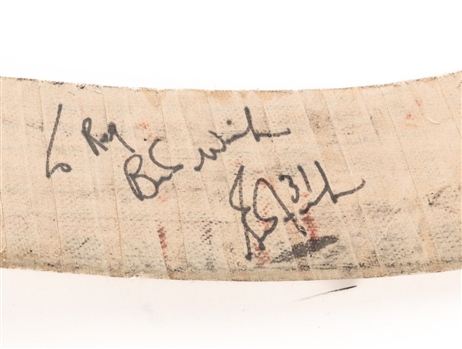 To Roy
Best Wishes
31